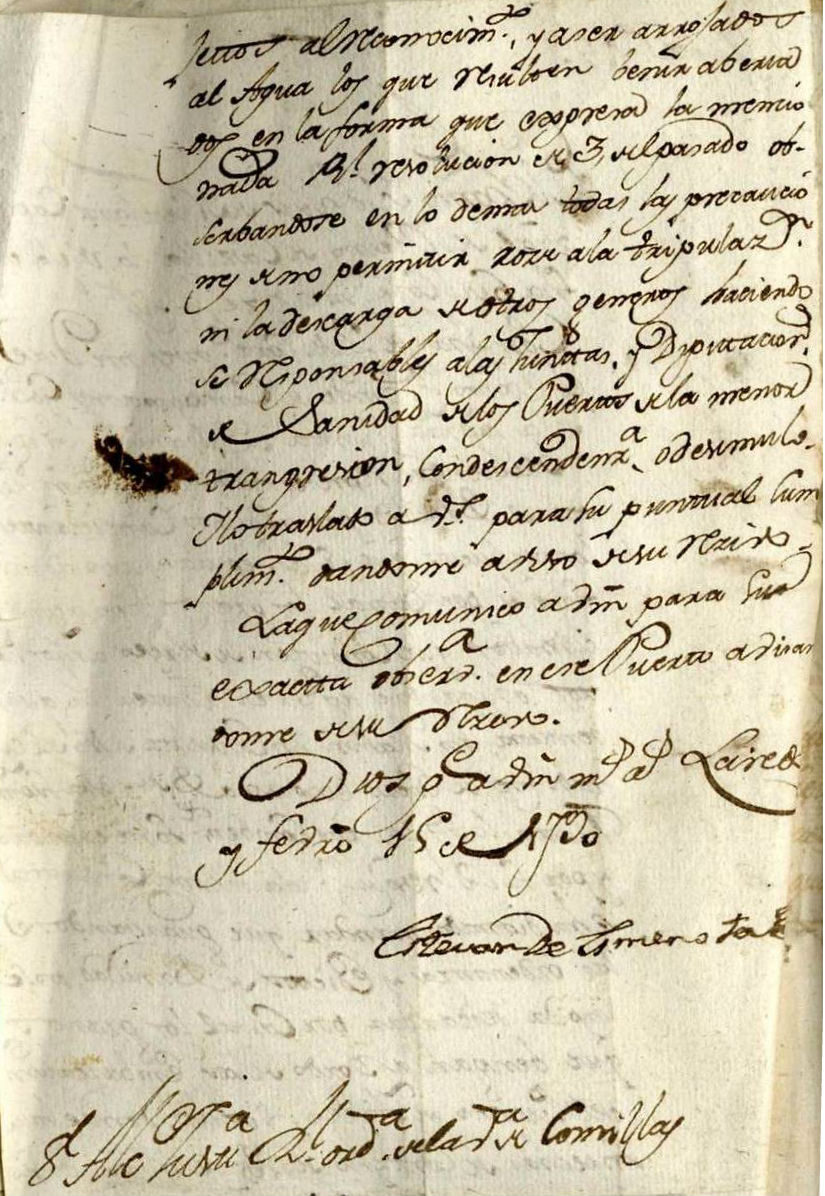 jettos al reconocim.to, y a ser arrojados
al Agua los que resulten benir abería
dos en la forma que expresa la mencio
nada Rl. resolucion de 3, del pasado ob-
serbandose en lo demas todas las precaucio
nes de no permitir roze a la tripulaz.on
ni la descarga de otros generos haciendo
se responsables a las Juntas, y Diputacion.s
de Sanidad de los Puertos de la menor
trangresion, Condescendenz.a o desimulo.
Y lo traslado a Vd. para su puntual Cum
plim.to dandome aviso de su recivo.
La que comunico a Vm para su
exactta obserb.a en ese Puerto avisan
dome de su recivo.
Dios g.e a Vm m.s a.s Laredo
y febrero 15 de
Estevan de
S.or Alc de la V.a de Comillas